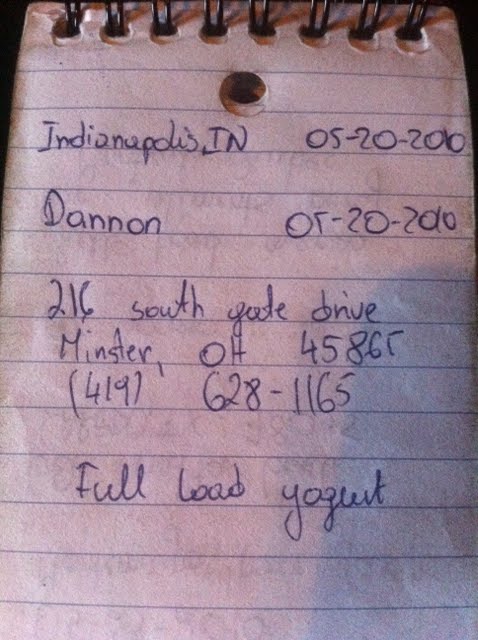 Indianapolis, IN 05-20-2010
Dannon 05-20-2010
216 south gate drive
Minster, OH 45865
(419) 628-1165
Full load yogurt